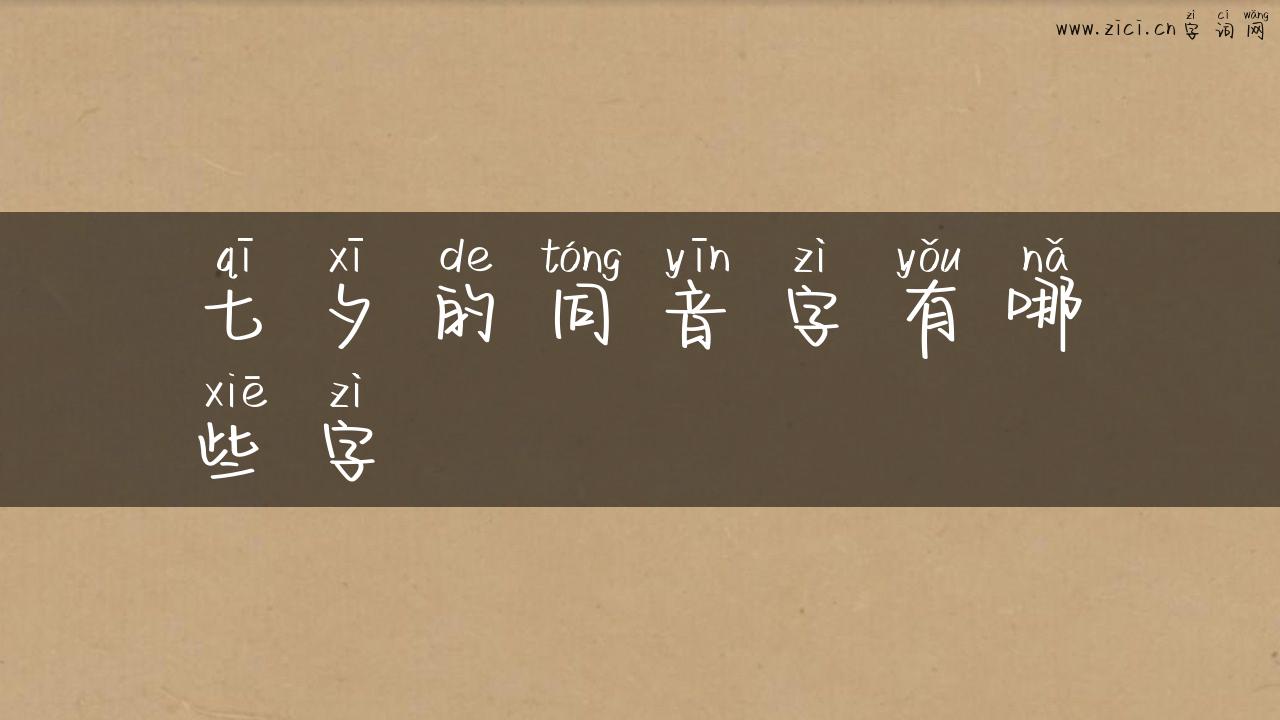 zì cí wǎng
www.zici.cn 字 词 网
qī xī de tóng yīn zì yǒu nǎ
七 夕 的 同 音 字 有 哪
xiē zì
些 字